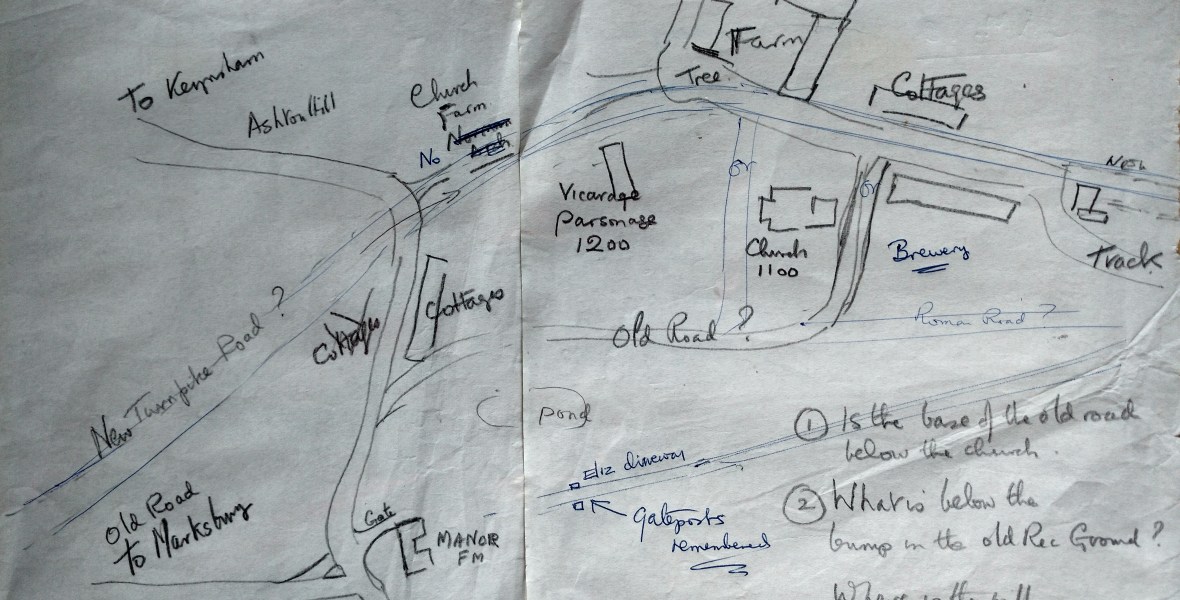 To Keynsham
Ashton Hill
Church
Farm
No
Norman
Arch
Farm
Tree
Cottages
New
Vicarage
Parsonage
1200
or
Church
1100
or
Brewery
Track
Cottages
Cottages
Old Road ?
Roman Road ?
New Turnpike Road ?
Pond
Eliz driveway
Gateposts
remembered
Old Road
to Marksbury
Gate
MANOR
FM
① Is the base of the old road
below the church.
② What is below the
bump in the old Rec Ground ?